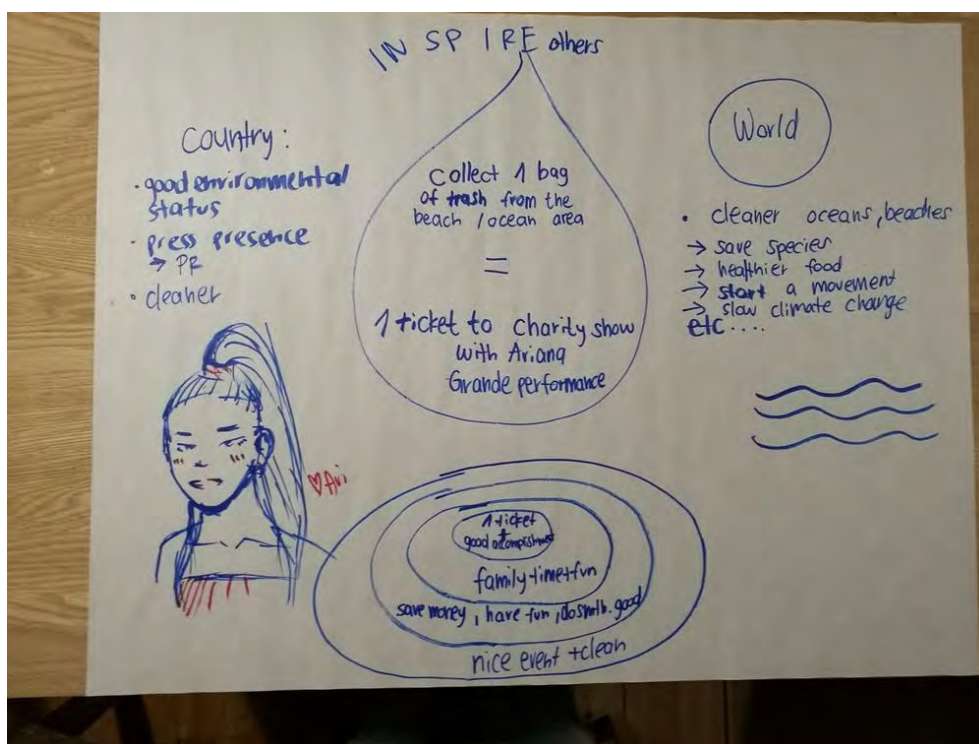 INSPIRE others
Country:
• good environmental
status
• press presence
→ PR
• cleaner
collect 1 bag
of trash from the
beach / ocean area
=
1 ticket to charity show
with Ariana
Grande performance
World
• cleaner oceans, beaches
→ save species
→ healthier food
→ start a movement
→ slow climate change
etc ....
♡ Ari
1 ticket
+
good
family time + fun
save money, have fun, do smth. good
nice event + clean